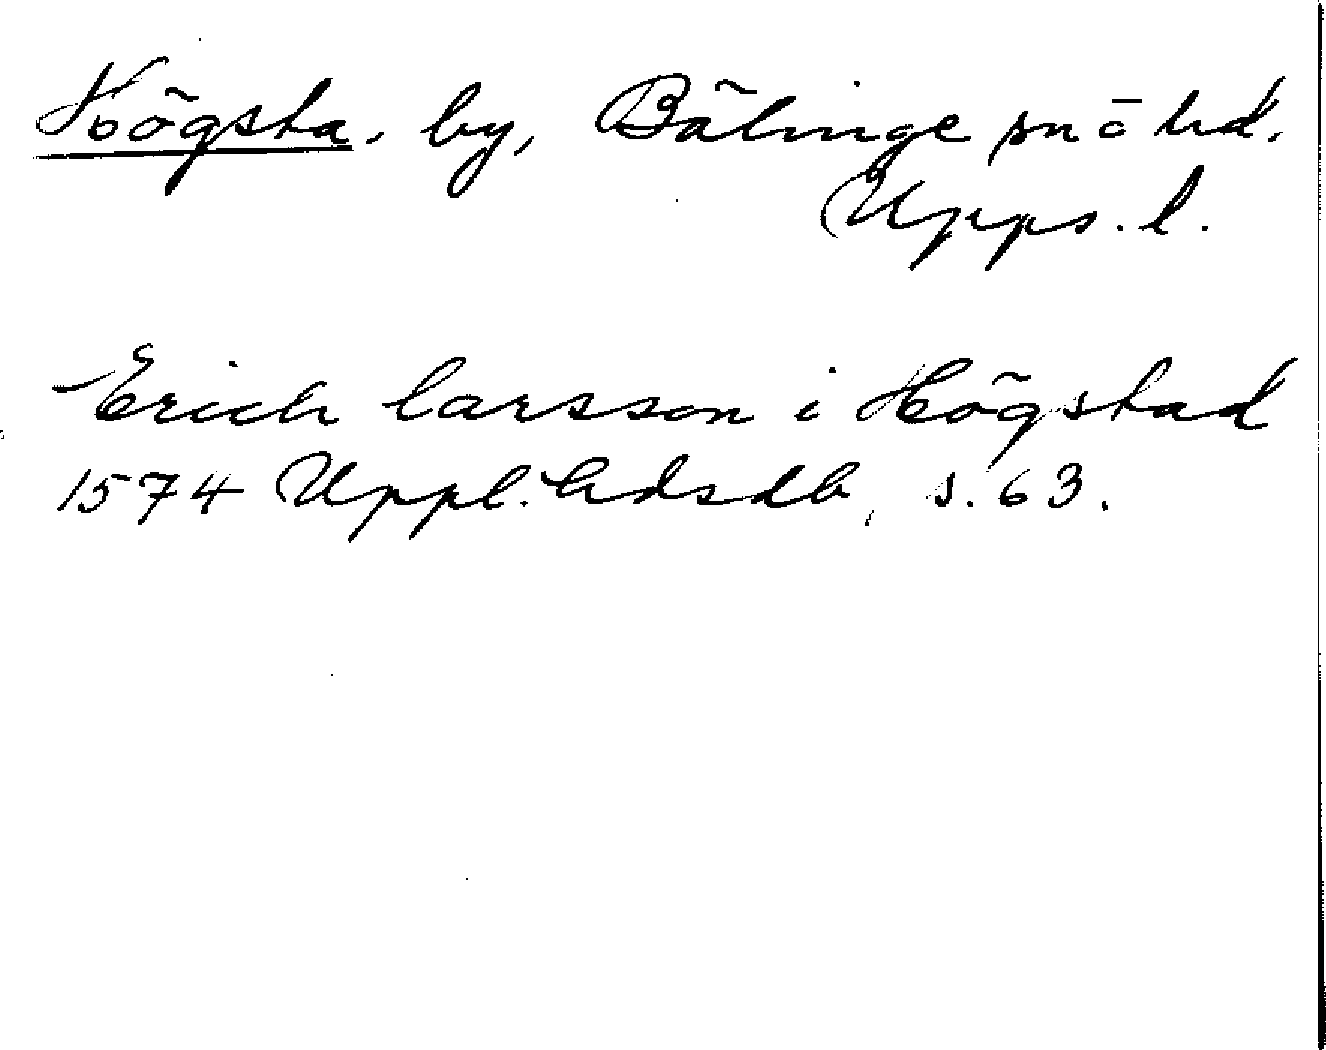 Högsta, by, Bälinge sn o hd.
Upps. l.
Erich larsson i Högstad
1574 Uppl. hdsdb, s. 63.